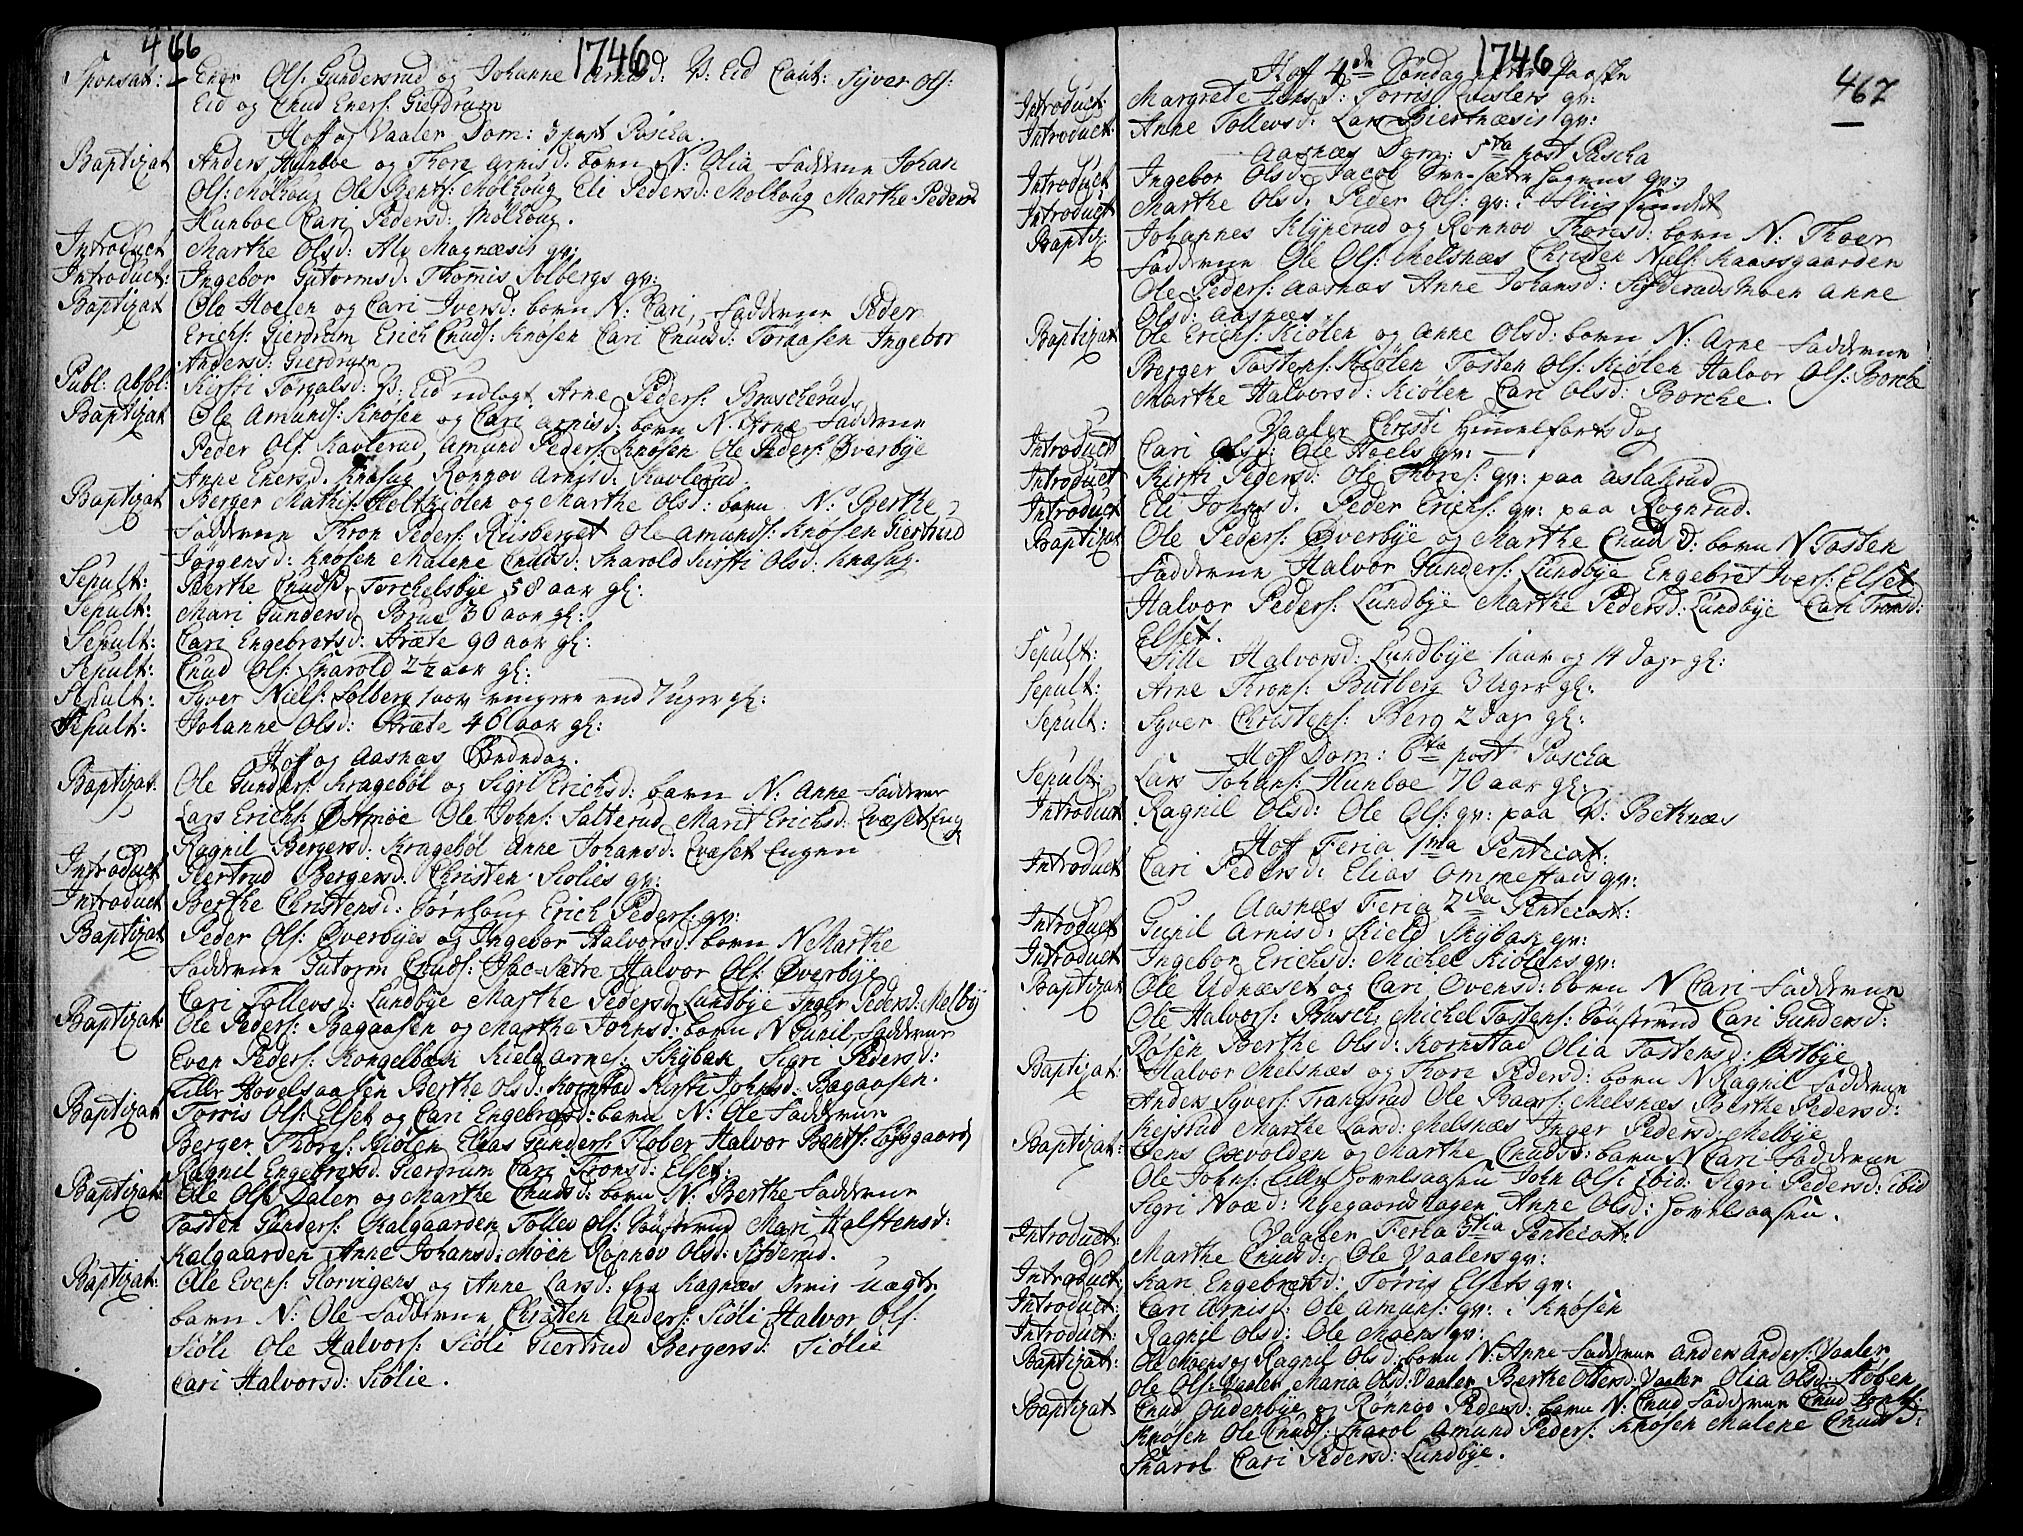 466
1746
Sponsat: Ener Ols: Gundersrud og Johanne d: V: Eid Caut: Syver Ols:
Eid og Cnud Eners: Gierdrum
Hoff og Vaaler Dom: 3 post Pascha.
Baptizat Anders Hunboe og Thore Arnisd: barn N: Olia Fadderne Johan
Ols: Molkoug Ole Bents: Molkoug Eli Pedersd: Molkoug Marthe Pedersd
Hunboe Cari Pedersd: Molkoug.
Introduct Marthe Olsd: Alv Magnæsis qv:
Introduct: Ingebor Gutormsd: Thomis Solbergs qv:
Baptizat Ole Hoelen og Cari Iversd: barn N: Cari, Fadderne Peder
Erichs: Gierdrum Erich Cnuds: Knosen Cari Cnudsd: Tornaasen Ingebor
Andersd: Gierdrum
Publ: Absol: Kirsti Torgalsd: V: Eid udlagt Arne Peders: Bruscherud
Baptizat Ole Amunds: Knosen og Cari Arnisd: barn N: Arne Fadderne
Peder Ols: Kavlerud, Amund Peders: Knosen Ole Peders: Øverbye
Anne Enersd. Knasug Ronnov Arnisd: Kavlerud.
Baptizat Berger Mathis: Holtkiolen og Marthe Olsd: barn N: Berthe
Fadderne Thron Peders: Riisberget Ole Amunds: Knosen Giertrud
Jørgensd: Knosen Malene Cnudsd: Skarold Kirsti Olsd: Knasug.
Sepult: Berthe Cnudsd, Torchelsbye 58 aar gl:
Sepult: Mari Gundersd Brue 36 aar gl:
Sepult: Cari Engebretsd: Stræte 90 aar gl:
Sepult: Cnud Ols: Skarold 2½ aar gl:
Sepult: Syver Niels: Solberg 1 aar ringere end 7 uger gl:
Sepult: Johanne Olsd: Stræte 46 aar gl:
Hoff og Aasnæs Bededag.
Baptizat: Ole Gunders: Kragebøl og Sigri Erichsd: barn N: Anne Fadderne
Lars Erichs: Østmoe Ole Johns: Satterud Marit Erichsd: Qvæset Eng
Ragnil Bergersd: Kragebøl Anne Johansd: Qvæset Engen
Introduct Giertrud Bergersd: Christen Siolies qv:
Introduct Berthe Christensd: Erich Peders: qv:
Baptizat Peder Ols: Øverbyes og Ingebor Halvorsd: barn N Marthe
Fadderne Gutorm Cnuds: Hac-Sætre Halvor Ols: Øverbye
Cari Tollevsd: Lundbye Marthe Pedersd Lundbye Inger Pedersd: Melby
Baptizat: Ole Peders: Bagaasen og Marthe Johnsd: barn N Gunil Fadderne
Even Peders: Kongelbek Kield Arnes: Skybak Sigri Pedersd:
Lille Hovelsaasen Berthe Olsd: Kornstad Kirsti Johnsd: Bagaasen.
Baptizat Torris Ols: Elset og Cari Engebretsd: barn N: Ole Fadderne
Berger Thores: Kiolen Elias Gunders: Flober Halvor Bents: Løfsgaard
Ragnil Engebretsd: Gierdrum Cari Tronsd: Elset.
Baptizat: Ole Ols: Daler og Marthe Cnudsd: barn N: Berthe Fadderne
Tosten Gunders: Kalgaarden Tollev Ols: Bøustrud Mari Halstensd:
Kalgaarden Anne Johansd: Moen Ronnov Olsd: Søderud.
Baptizat: Ole Evens: Glorvigens og Anne Larsd: fra Kagnæs deris Uægte
barn N: Ole Fadderne Christen Anders: Siøli Halvor Ols:
Siøli Ole Halvors: Siøli Giertrud Bergersd: Siølie
Cari Halvorsd: Siølie.
1746
467
Hoff 4de Søndag efter Paaske
Introduct Margrete Jensd: Torris Qvislers qv:
Introduct: Anne Tollevsd: Lars Biertnæsis qv:
Aasnæs Dom: 5ta post Pascha
Introduct Ingebor Olsd: Jacob Svensætterhagens qv:
Introduct Marthe Olsd: Peder Ols: qv: i
Baptiz: Johannes Klyperud og Ronnov Thorisd: barn N: Thoer
Fadderne Ole Ols: Melsnæs Christen Niels: Kaassgaarden
Ole Peders: Aasnæs Anne Johansd: Synderudsmoen Anne
Olsd: Aasnæs
Baptizat Ole Erichs: Kiolen og Anne Olsd: barn N: Arne Fadderne
Berger Tostens: Kiolen Tosten Ols: Kiolen Halvor Ols: Borche
Marthe Halvorsd: Kiolen Cari Olsd: Borche.
Vaaler Christi Himmelfartsdag
Introduct Cari Olsd: Ole Hoels qv:
Introduct Kirsti Pedersd: Ole Thores: qv: paa Aslakrud
Introduct Eli Johnsd. Peder Erichs: qv: paa Rognrud.
Baptizat Ole Peders: Øverbye og Marthe Cnudsd: barn N Tosten
Fadderne Halvor Gunders: Lundbye Engebret Ivers: Elset
Halvor Peders: Lundbye Marthe Pedersd: Lundbye Cari Tronsd:
Elset.
Sepult: Sille Halvorsd: Lundbye 1 aar og 14 dage gl:
Sepult: Arne Throns: Butberg 3 Uger gl:
Sepult: Syver Christens: Berg 2 dage gl:
Hoff Dom: 6ta post Pascha
Sepult: Lars Johans: Hunboe 70 aar gl:
Introduct Ragnil Olsd: Ole Ols: qv: paa V: Beknæs
Hoff Feria 1ma Pentecost:
Introduct Cari Pedersd: Elias Ommestads qv:
Aasnæs Feria 2da Pentecost:
Introduct Gunil Arnisd: Kield Skybak qv:
Introduct Ingebor Erichsd: Michel Kiolens qv:
Baptizat Ole Udnæset og Cari Ovensd: barn N Cari Fadderne
Ole Halvors: Busch, Michel Tostens: Bøustrud Cari Gundersd:
Røsen Berthe Olsd: Kornstad Olia Tostensd: Østbye
Baptizat: Halvor Melsnæs og Thori Pedersd: barn N Ragnil Fadderne
Anders Syvers: Trangsrud Ole Baars: Melsnæs Berthe Pedersd:
Kejstad Marthe Larsd: Melsnæs Inger Pedersd: Melbye
Baptizat: Jens Oxvolden og Marthe Cnudsd: barn N Cari Fadderne
Ole Johns: Lille Hovelsaasen John Ols: ibid: Sigri Pedersd: ibid
Sigri Noæd: Nyegaardshagen Anne Olsd: Hovelsaasen.
Vaaler Feria 3tia Pentecost:
Introduct: Marthe Cnudsd: Ole Vaalers qv:
Introduct: Kari Engebretsd: Torris Elsets qv:
Introduct: Cari Arnisd: Ole Amuns: qv: i Knøsen
Introduct: Ragnil Olsd: Ole Moens qv:
Baptizat: Ole Moens og Ragnil Olsd: barn N: Anne Fadderne Anders Anders: Vaaler
Ole Ols: Vaaler Maria Olsd: Vaaler Berthe Olsd: Vaaler Olia Olsd: Høben
Baptizat Cnud Oudenbye og Ronnov Pedersd: barn N: Cnud Fadderne Cnud
Knøsen Ole Cnuds: Skarol Amund Peders: Knøsen Malene Cnudsd:
Skarol Cari Pedersd: Lundbye.